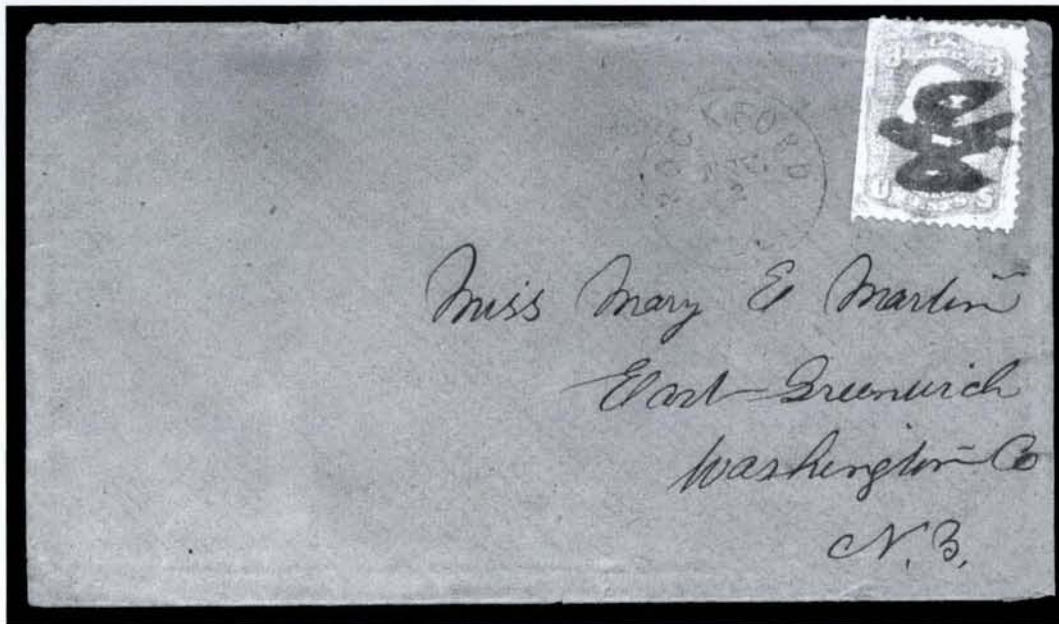 ROCKFORD
U S
Miss Mary E Martin
East Greenwich
Washington Co
N. Y.